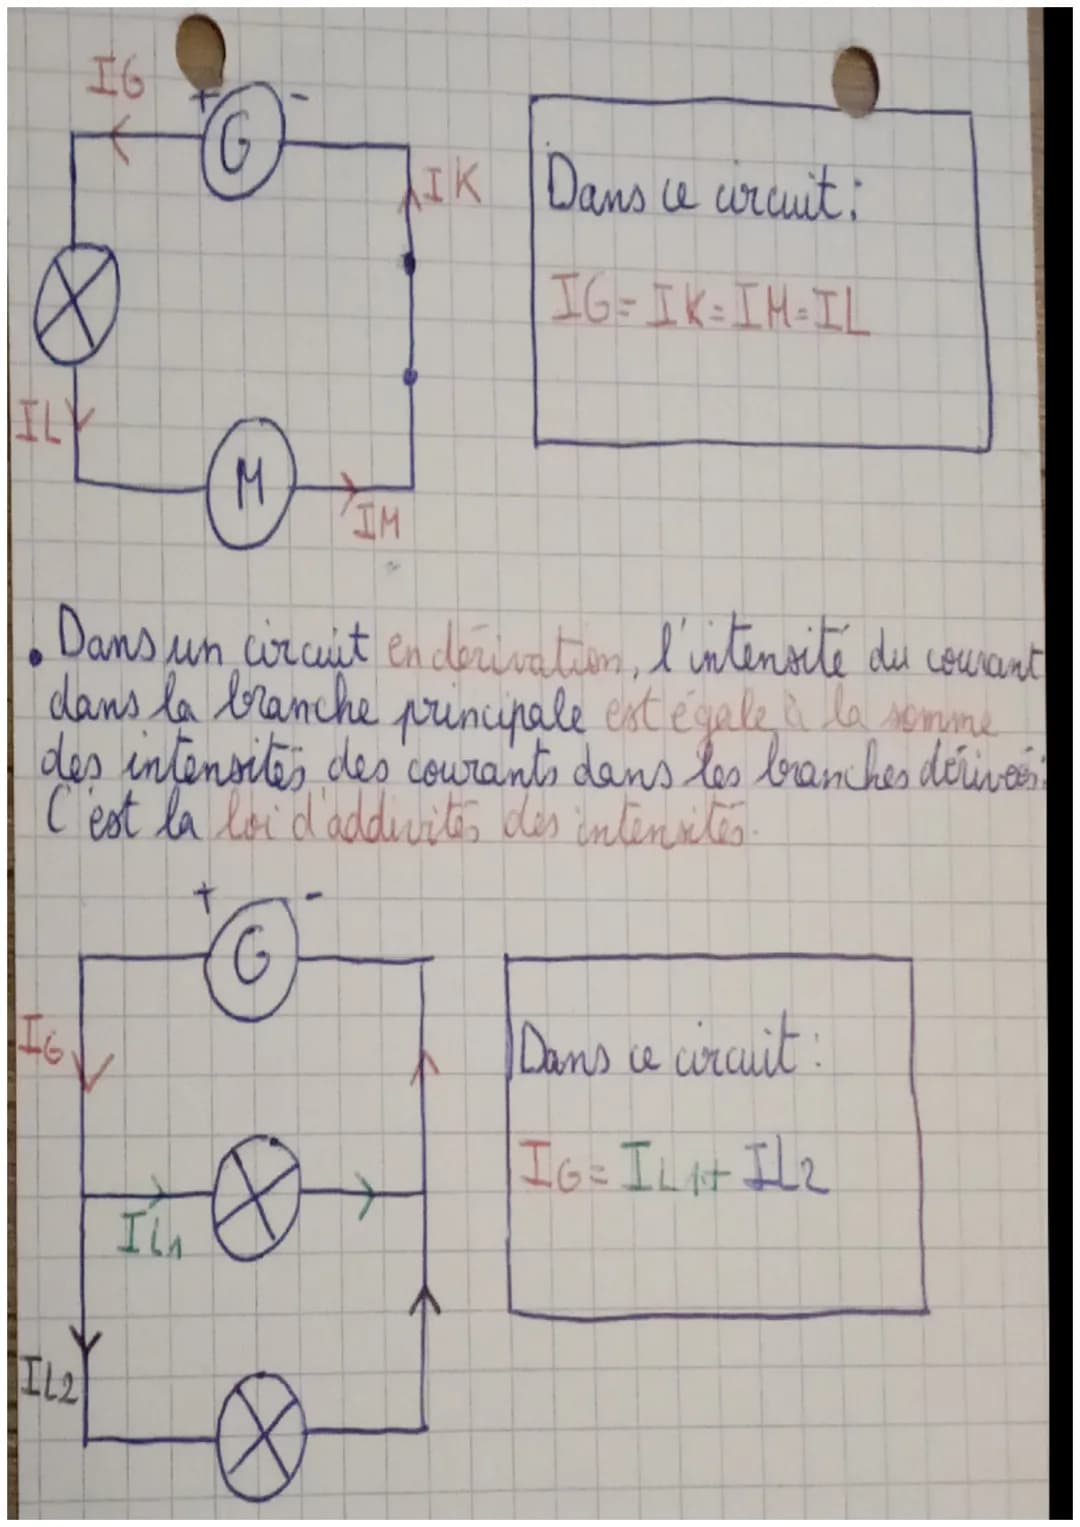 IG
+ -
G
IK
Dans ce circuit:
IG = IK = IM = IL
IL
M
IM
• Dans un circuit en dérivation, l'intensité du courant
dans la branche principale est égale à la somme
des intensités des courants dans les branches dérivées.
C'est la loi d'addivités des intensités.
+ -
G
IG
Dans ce circuit :
IG = IL1 + IL2
IL1
IL2